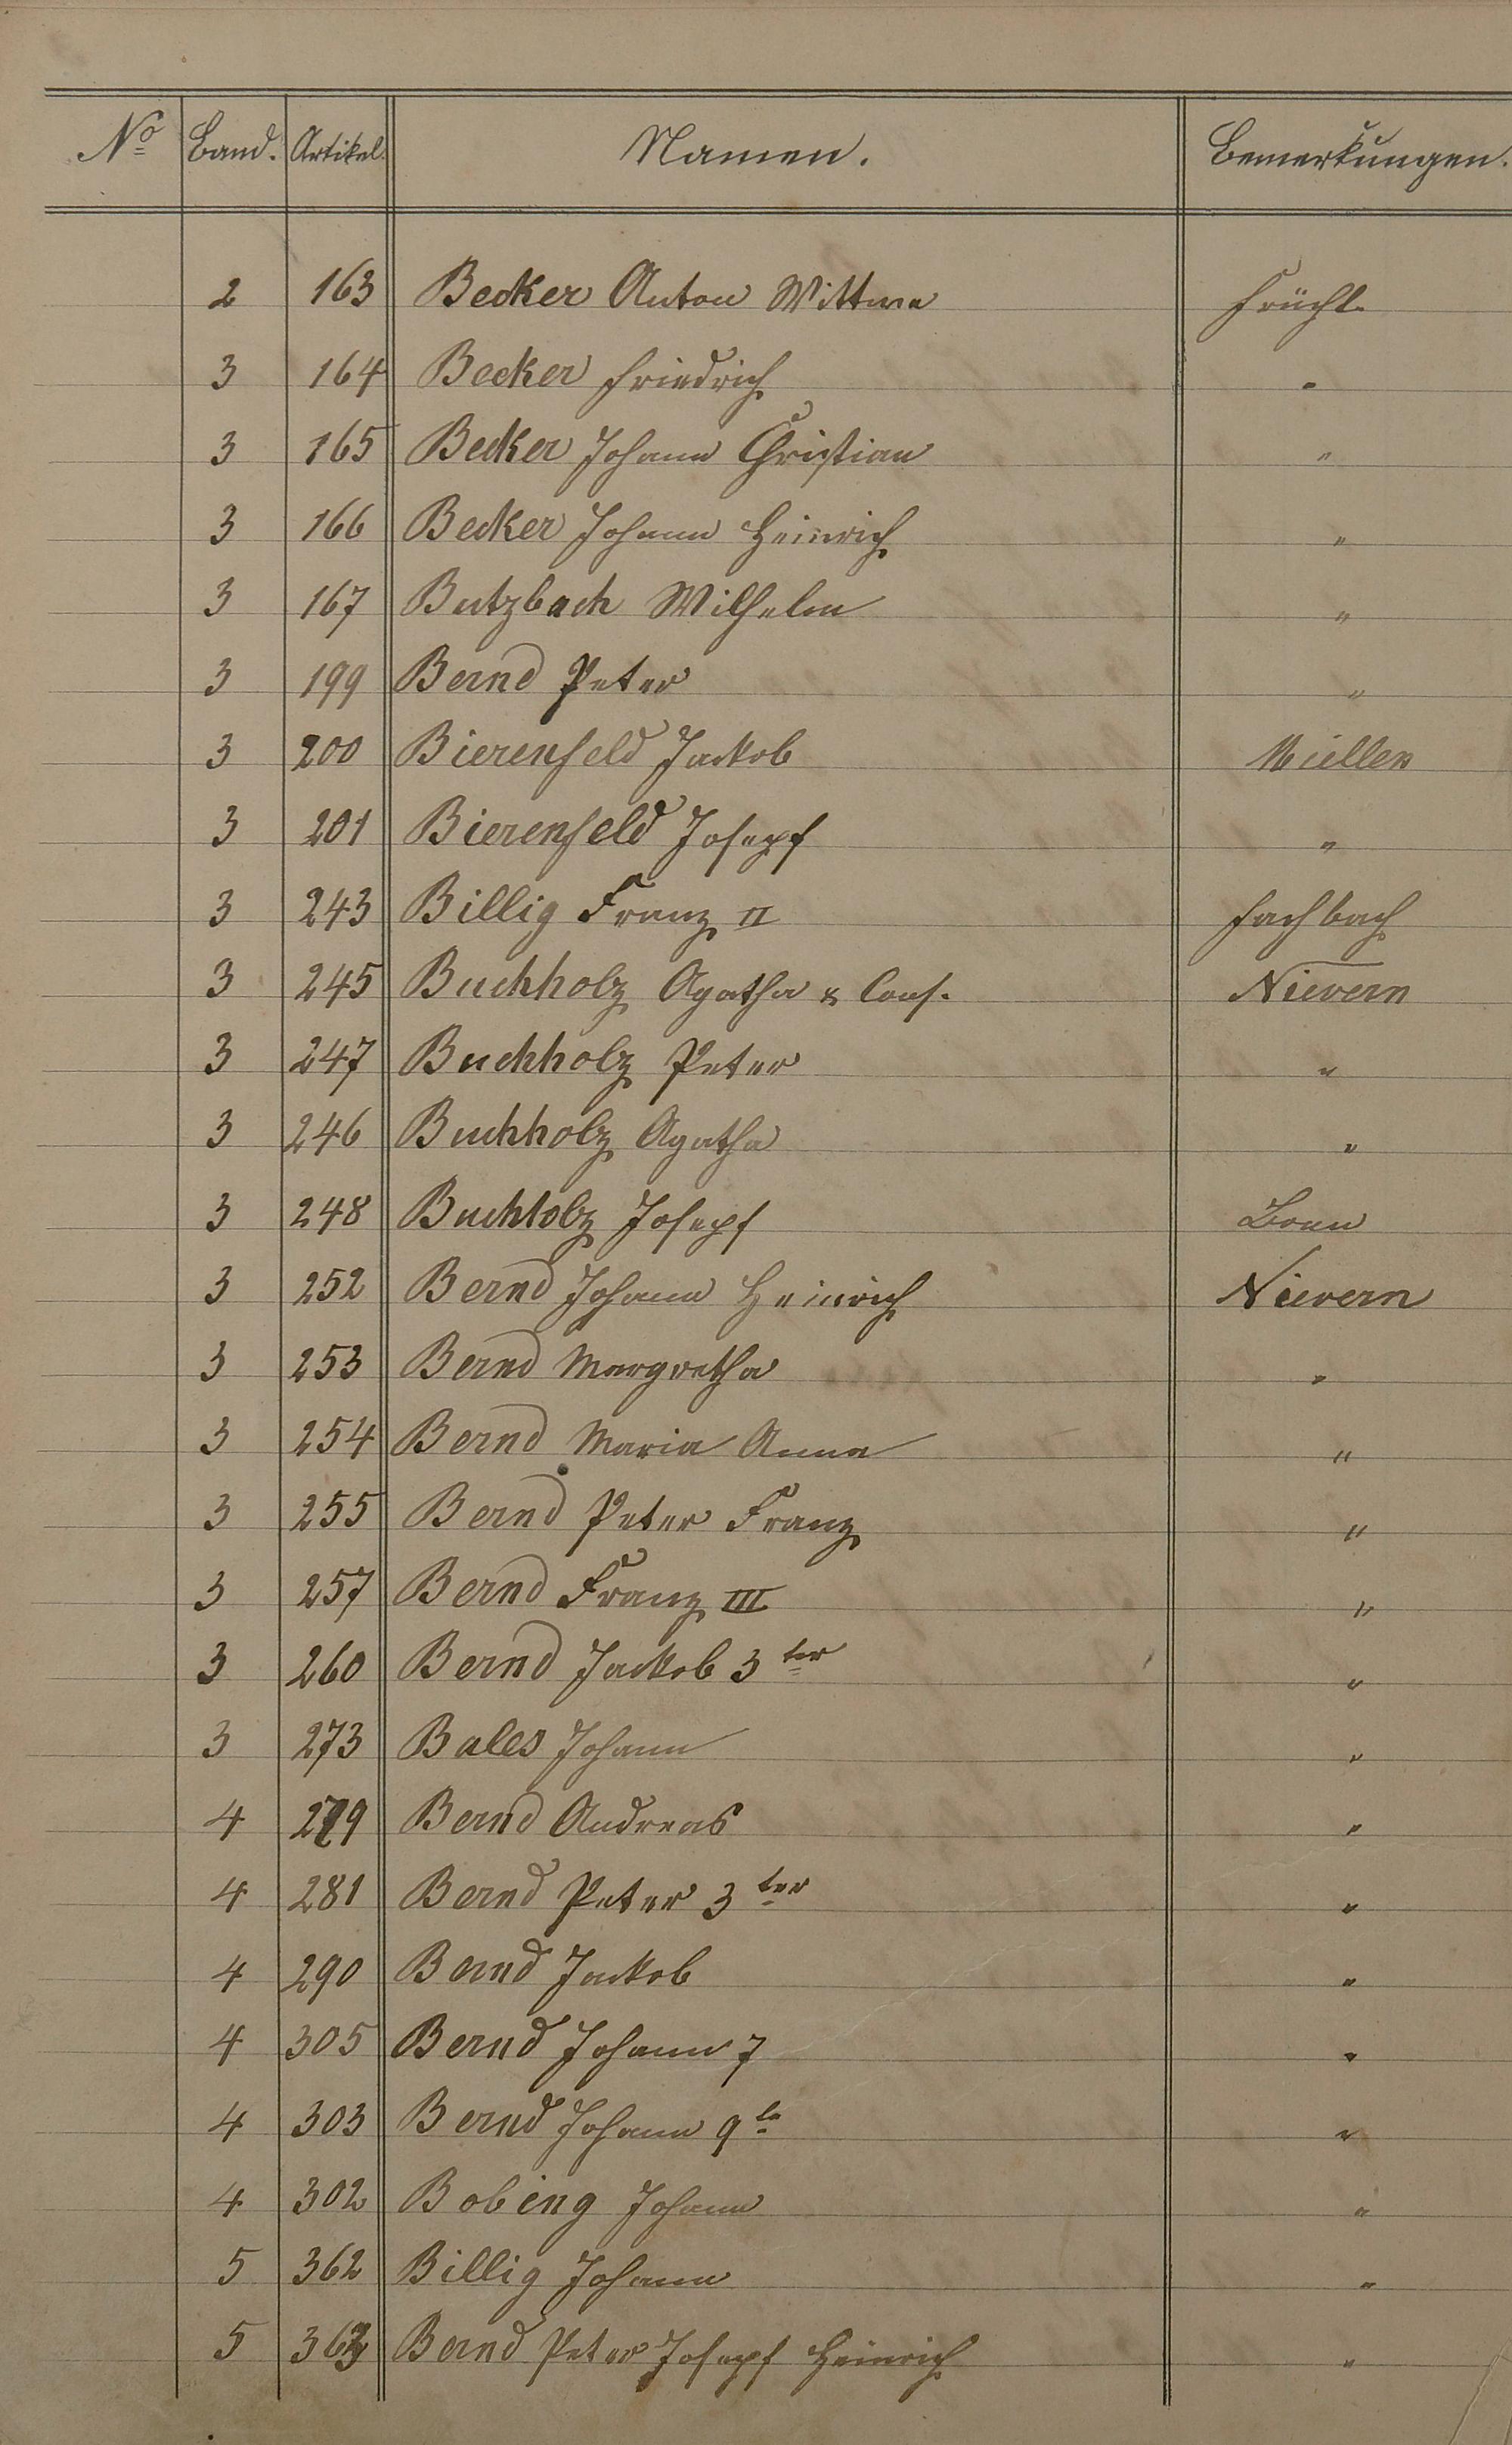 No Band. Artikel. Namen. Bemerkungen.
2 163 Becker Anton Wittwe Frücht.
3 164 Becker Friedrich "
3 165 Becker Johann Christian "
3 166 Becker Johann Heinrich "
3 167 Butzbach Wilhelm "
3 199 Bernd Peter "
3 200 Bierenfeld Jackob Miellen
3 201 Bierenfeld Joseph "
3 243 Billig Franz II Fachbach
3 245 Buchholz Agatha & Cons. Nievern
3 247 Buchholz Peter "
3 246 Buchholz Agatha "
3 248 Buchholz Joseph Bonn
3 252 Bernd Johann Heinrich Nievern
3 253 Bernd Margretha "
3 254 Bernd Maria Anna "
3 255 Bernd Peter Franz "
3 257 Bernd Franz III "
3 260 Bernd Jackob 3ter "
3 273 Bales Johann "
4 279 Bernd Andreas "
4 281 Bernd Peter 3ter "
4 290 Bernd Jackob "
4 305 Bernd Johann 7 "
4 303 Bernd Johann 9te "
4 302 Bobing Johann "
5 362 Billig Johann "
5 363 Bernd Peter Joseph Heinrich "